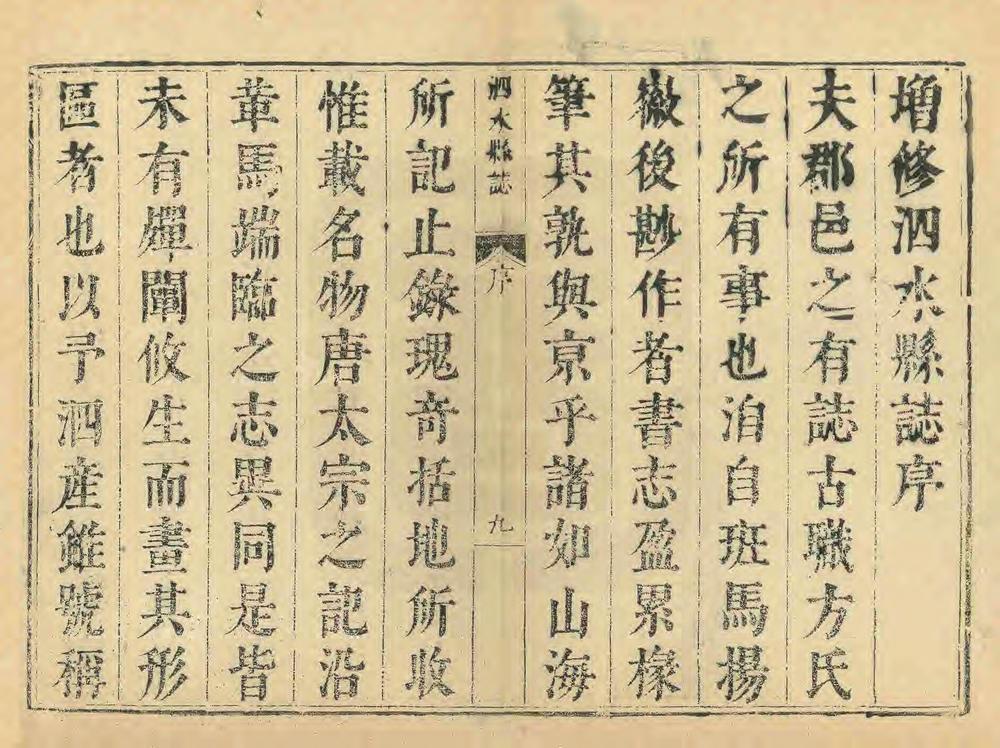 增修泗水縣誌序
夫郡邑之有誌古職方氏
之所有事也洎自班馬揚
徽後尠作者書志盈累椽
筆其孰與京乎諸如山海
泗水縣誌 序 九
所記止錄瑰奇括地所收
惟載名物唐太宗之記沿
革馬端臨之志異同是皆
未有嬋闡攸生而畫其形
區者也以予泗產雖號稱